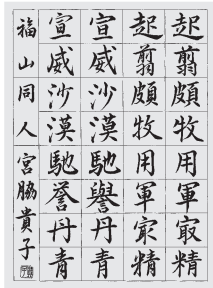 起翦頗牧用軍㝡精
起翦頗牧用軍㝡精
宣威沙漠馳譽丹青
宣威沙漠馳誉丹青
福山同人 宮脇貴子